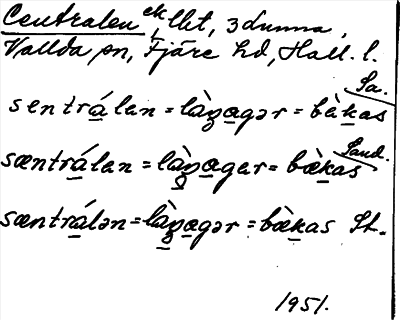 Centralen ek
llht, 3 dunna,
Vallda sn, Fjäre hd, Hall. l.
Sa.
sentrálen = làgagər = bàkas
Sand.
sæntrálan = làgagar = bækas
sæntrálən = làgagər = bækas St.
1951.